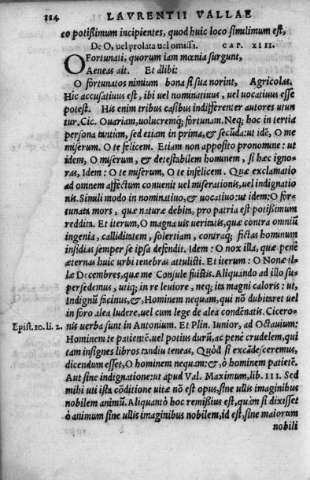 114 LAVRENTII VALLAE
eo potissimum incipientes, quod huic loco simillimum est,
De O, uel prolata uel omissa. CAP. XIII.
O Fortunati, quorum iam mœnia surgunt,
Aeneas ait. Et alibi:
O fortunatos nimium bona si sua norint, Agricolas.
Hic accusatiuus est, ibi uel nominatiuus, uel uocatiuus esse
potest. His enim tribus casibus indifferenter autores utun
tur. Cic. O uirtam, uolucremq; fortunam. Neq; hoc in tertia
persona tantium, sed etiam in prima, & secūda: ut idē, O me
miserum. O te felicem. Etiam non apposito pronomine: ut
idem, O miserum, & detestabilem hominem, si hæc igno-
ras, Idem: O te miserum, O te infelicem. Quæ exclamatio
ad omnem affectum conuenit uel miserationis, uel indignatio
nis. Simili modo in nominatiuo, & uocatiuo: ut idem: O for-
tunata mors, quæ naturæ debita, pro patria est potissimum
reddita. Et iterum, O magna uis ueritatis, quæ contra omniū
ingenia, calliditatem, solertiam, contraq; fictas hominum
insidias semper se ipsa defendit. Idem: O nox illa, quæ penè
æternas huic urbi tenebras attulisti. Et iterum: O Nonæ il-
læ Decembres, quæ me Consule fuistis. Aliquando ad illo su-
persedemus, utiq; in re leuiore, neq; ita magni caloris: ut,
Indignū facinus, &, Hominem nequam, qui nō dubitaret uel
in foro alea ludere, uel cum lege de alea condēnatis. Cicero-
Epist. 10. li. 2. nis uerba sunt in Antonium. Et Plin. Iunior, ad Octauium:
Hominem te patientē, uel potius durū, ac penè crudelem, qui
tam insignes libros tandiu teneas, Quòd si excādesceremus,
dicendum esset, O hominem nequam: &, ô hominem patientē.
Aut sine indignatione: ut apud Val. Maximum, lib. III. Sed
mihi uti ista cōditione uitæ nō est opus, sine ullis imaginibus
nobilem animū. Aliquantò hoc remißius est, quàm si dixisset
ô animum sine ullis imaginibus nobilem, id est, sine maiorum
nobili